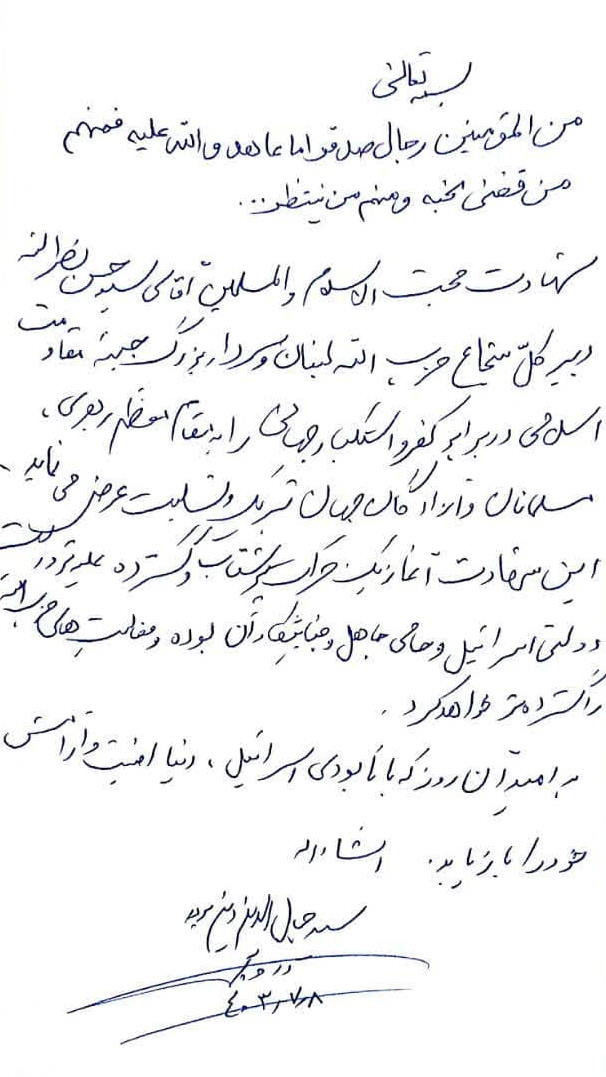 بسمه تعالی
من المؤمنین رجال صدقوا ما عاهدوا الله علیه فمنهم
من قضی نحبه و منهم من ینتظر...
شهادت حجت الاسلام والمسلمین آقای سید حسن نصرالله
دبیر کلّ شجاع حزب الله لبنان و سردار بزرگ جبهه مقاومت
اسلامی در برابر کفر و استکبار جهانی را به مقام معظم رهبری،
مسلمانان و آزادگان جهان تبریک و تسلیت عرض می نماید.
این شهادت آغاز یک حرکت پرشتاب و گسترده علیه ترور
دولتی اسرائیل و حامی جاهل و جنایتکار آن بوده و فعالیت های حزب الله
را گسترده تر خواهد کرد.
به امید آن روز که با نابودی اسرائیل، دنیا امنیت و آرامش
خود را بازیابد. انشاءاله
سید جمال الدین دین پرور
۴۰۳٫۷٫۸